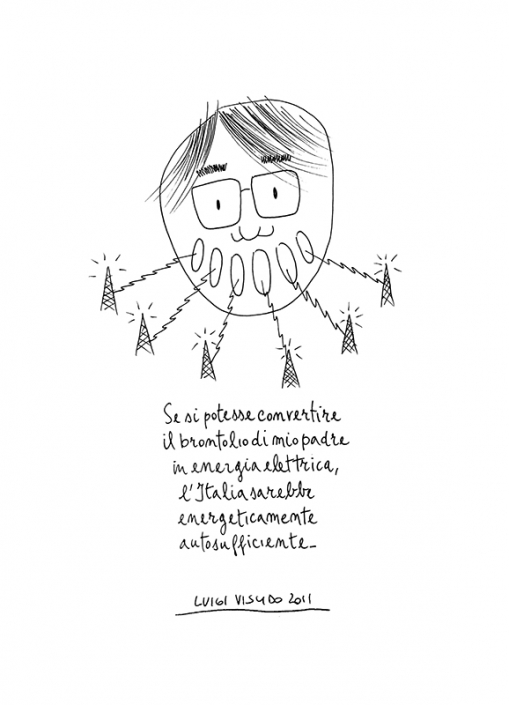 Se si potesse convertire
il brontolio di mio padre
in energia elettrica,
l'Italia sarebbe
energeticamente
autosufficiente_
LUIGI VISUDO 2011